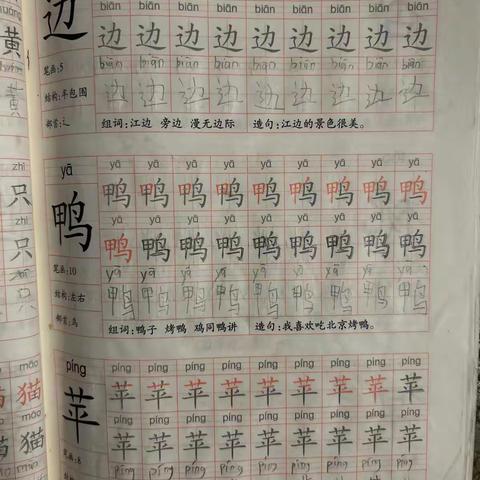 biān biān biān biān biān biān biān biān
边 边 边 边 边 边 边 边 边
笔画:5
biān biān biān biān biān biān biān biān
结构:半包围
边 边 边 边 边 边 边 边
部首:辶
组词:江边 旁边 漫无边际 造句:江边的景色很美。
yā
yā yā yā yā yā yā yā yā
鸭
鸭 鸭 鸭 鸭 鸭 鸭 鸭 鸭
yā yā yā yā yā yā yā yā
鸭 鸭 鸭 鸭 鸭 鸭 鸭 鸭
笔画:10
yā yā yā yā yā yā yā yā
结构:左右
鸭 鸭 鸭 鸭 鸭 鸭 鸭 鸭
部首:鸟
组词:鸭子 烤鸭 鸡同鸭讲 造句:我喜欢吃北京烤鸭。
píng
píng píng píng píng píng píng píng píng
苹
苹 苹 苹 苹 苹 苹 苹 苹
píng píng píng píng píng píng píng píng
苹 苹 苹 苹 苹 苹 苹 苹
笔画:8
píng píng píng píng píng píng píng píng
huáng
黄
黄
zhī
只
zhī
只
只
māo
猫
māo
猫